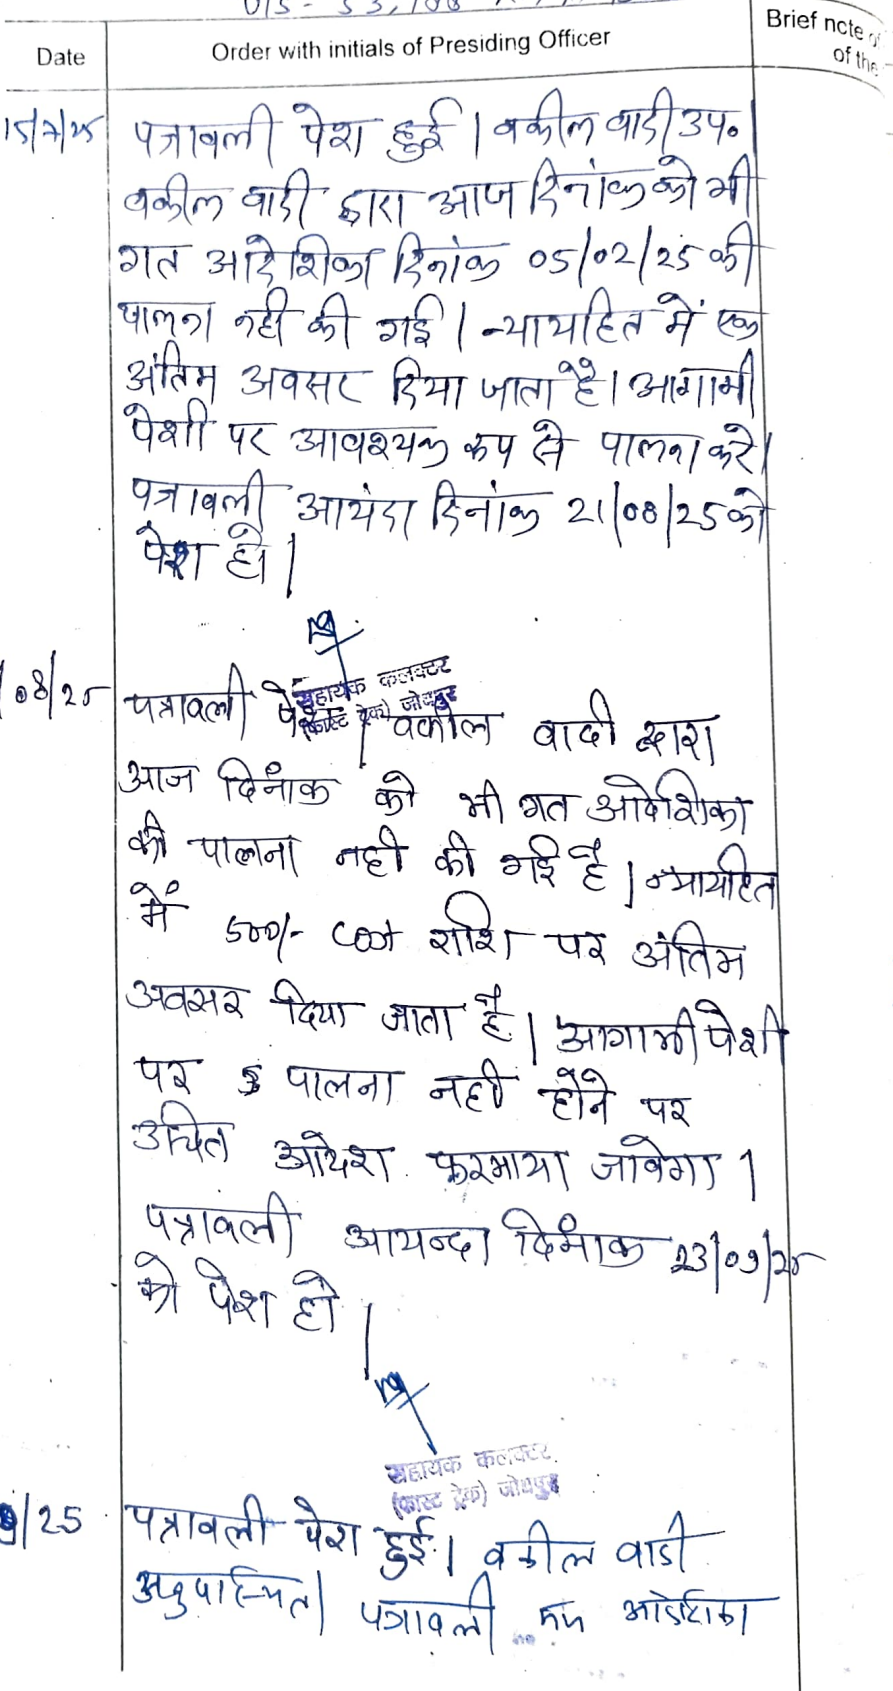 Date
Order with initials of Presiding Officer
Brief note of
of the
15/7/25 पत्रावली पेश हुई। वकील वादी उप०
वकील वादी द्वारा आज दिनांक को भी
गत आदेशिका दिनांक 05/02/25 की
पालना नही की गई। न्यायहित में एक
अंतिम अवसर दिया जाता है। आगामी
पेशी पर आवश्यक रूप से पालना करे।
पत्रावली आयंदा दिनांक 21/08/25 को
पेश हो।
सहायक कलक्टर
(फास्ट ट्रेक) जोधपुर
/08/25 पत्रावली पेश। वकील वादी द्वारा
आज दिनांक को भी गत आदेशिका
की पालना नही की गई है। न्यायहित
में 500/- cost राशि पर अंतिम
अवसर दिया जाता है। आगामी पेशी
पर पालना नही होने पर
उचित आदेश फरमाया जावेगा।
पत्रावली आयन्दा दिनांक 23/09/25
को पेश हो।
सहायक कलक्टर
(फास्ट ट्रेक) जोधपुर
9/25 पत्रावली पेश हुई। वकील वादी
अनुपस्थित। पत्रावली गत आदेशिका